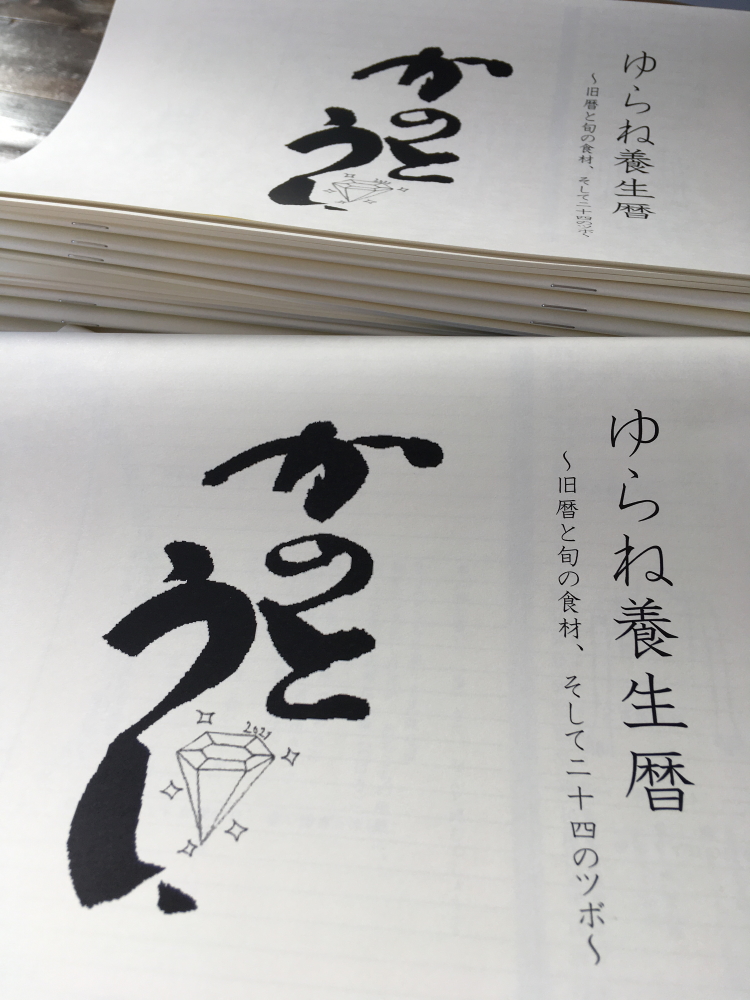 ゆらね養生暦
～旧暦と旬の食材、そして二十四のツボ～
かのと
うし
ゆらね養生暦
～旧暦と旬の食材、そして二十四のツボ～
かのと
うし
2021